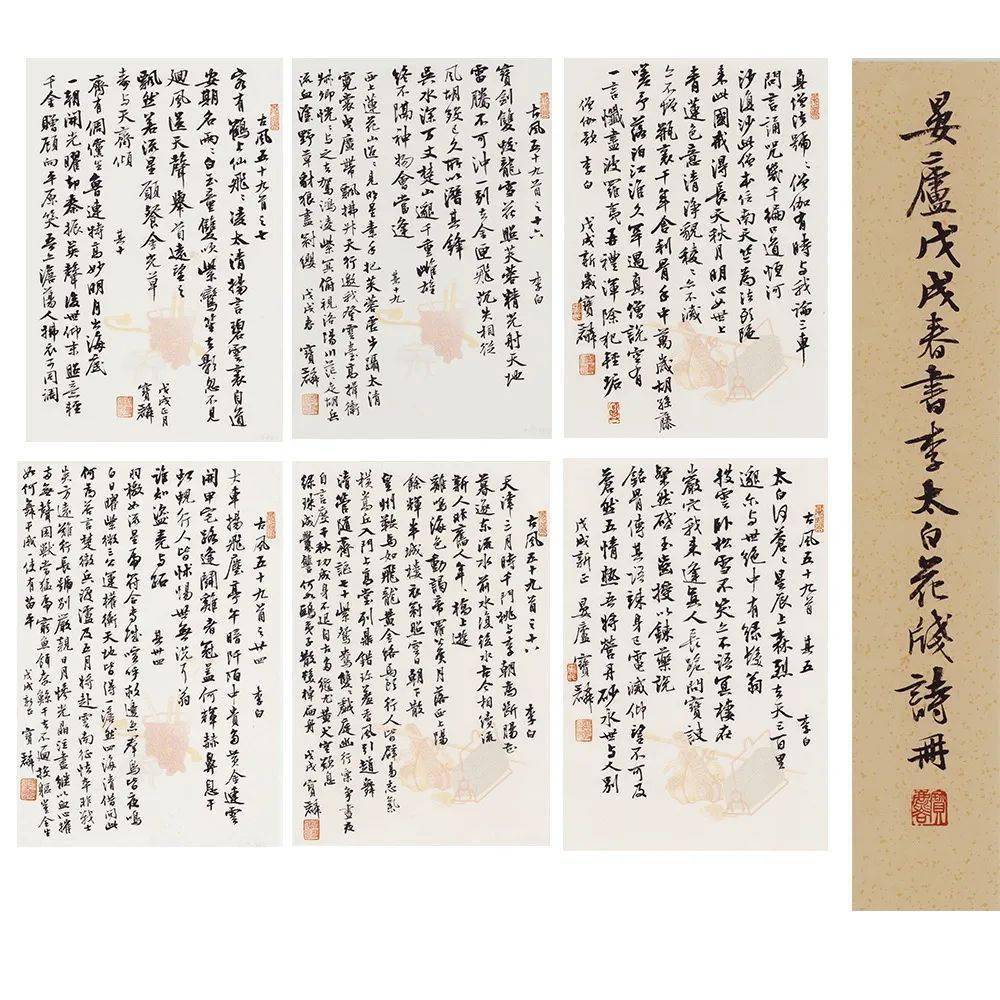 晏廬戊戌春書李太白花牋詩冊
真僧法號〻僧伽有時與我論三車
問言誦咒幾千徧口道恒河
沙復沙此僧本住南天竺為法頭陀
來此國戒得長天秋月明心如世上
青蓮色意清淨貌稜〻亦不減
亦不增瓶裏千年舍利骨手中萬歲胡孫藤
嗟予落泊江淮久罕遇真僧說空有
一言懺盡波羅夷再禮渾除犯輕垢
僧伽歌 李白 戊戌新歲 寶麟
古風五十九首之十六 李白
寶劍雙蛟龍雪花照芙蓉精光射天地
雷騰不可沖一別去金匣飛沉失相從
風胡歿已久所以潛其鋒
吳水深萬丈楚山邈千重雌雄
終不隔神物會當逢 其十九
西上蓮花山迢〻見明星素手把芙蓉虛步躡太清
霓裳曳廣帶飄拂升天行邀我登雲臺高揖衛
叔卿恍〻與之去駕鴻凌紫冥俯視洛陽川茫〻走胡兵
流血塗野草豺狼盡冠纓 戊戌春 寶麟
古風五十九首之七
客有鶴上仙飛〻凌太清揚言碧雲裏自道
安期名兩〻白玉童雙吹紫鸞笙去影忽不見
迴風送天聲舉首遠望之
飄然若流星願餐金光草
壽與天齊傾 其十
齊有倜儻生魯連特高妙明月出海底
一朝開光曜卻秦振英聲後世仰末照意輕
千金贈顧向平原笑吾亦澹蕩人拂衣可同調
戊戌正月 寶麟
古風五十九首 其五 李白
太白何蒼〻星辰上森列去天三百里
邈爾與世絕中有綠髮翁
披雲臥松雪不笑亦不語冥棲在
巖穴我來逢真人長跪問寶訣
粲然啟玉齒授以鍊藥說
銘骨傳其語竦身已電滅仰望不可及
蒼然五情熱吾將營丹砂永世與人別
戊戌新正 晏廬 寶麟
古風五十九首之十八 李白
天津三月時千門桃與李朝為斷腸花
暮逐東流水前水復後水古今相續流
新人非舊人年〻橋上遊
雞鳴海色動謁帝羅公侯月落西上陽
餘輝半城樓衣冠照雲日朝下散
皇州鞍馬如飛龍黃金絡馬頭行人皆辟易志氣
橫嵩丘入門上高堂列鼎錯珍羞香風引趙舞
清管隨齊謳七十紫鴛鴦雙〻戲庭幽行樂爭晝夜
自言度千秋功成身不退自古多愆尤黃犬空歎息
綠珠成釁讎何如鴟夷子散髮棹扁舟 戊戌 寶麟
古風五十九首之廿四 李白
大車揚飛塵亭午暗阡陌中貴多黃金連雲
開甲宅路逢鬥雞者冠蓋何輝赫鼻息干
虹蜺行人皆怵惕世無洗耳翁
誰知堯與跖 其卅四
羽檄如流星虎符合專城喧呼救邊急群鳥皆夜鳴
白日曜紫微三公運權衡天地皆得一澹然四海清借問此
何為答言楚徵兵渡瀘及五月將赴雲南征怯卒非戰士
炎方難遠行長號別嚴親日月慘光晶泣盡繼以血心摧
兩無聲困獸當猛虎窮魚餌奔鯨千去不一回投軀豈全生
如何舞干戚一使有苗平 戊戌新正 寶麟